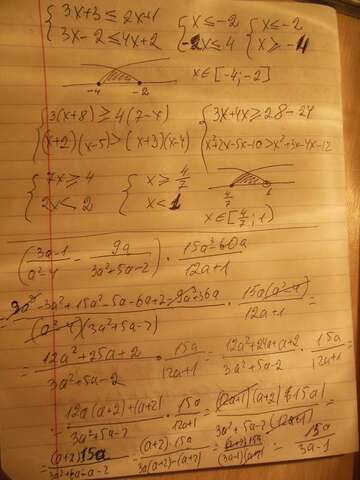 { 3x+3 ≤ 2x+1   { x ≤ -2   { x ≤ -2
{ 3x-2 ≤ 4x+2   { -x ≤ 4   { x ≥ -4
-4   -2   x∈[-4;-2]
{ 3(x+8) ≥ 4(7-x)   { 3x+4x ≥ 28-24
{ (x+2)(x-5) > (x+3)(x-4)   { x²+2x-5x-10 > x²+3x-4x-12
{ 7x ≥ 4   { x ≥ 4/7
{ 2x < 2   { x < 1   4/7   1
x∈[4/7; 1)
(3a-1/a²-4 - 9a/3a²+5a-2) · 15a³-60a/12a+1
-3a²+15a²-5a-6a+2-9a³+36a/(a²-4)(3a²+5a-2) · 15a(a²-4)/12a+1 =
= 12a²+25a+2/3a²+5a-2 · 15a/12a+1 = 12a²+24a+a+2/3a²+5a-2 · 15a/12a+1 =
12a(a+2)+(a+2)/3a²+5a-2 · 15a/12a+1 = (12a+1)(a+2)·15a/3a²+5a-2(12a+1) =
= (a+2)·15a/3a²+6a-a-2 = (a+2)·15a/3a(a+2)-(a+2) = (a+2)15a/(3a-1)(a+2) = 15a/3a-1